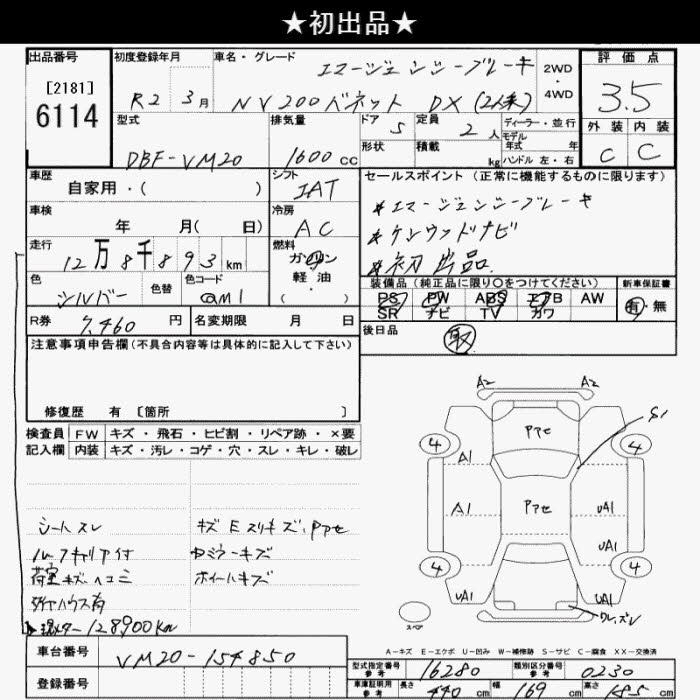 ★初出品★
出品番号
[2181]
6114
初度登録年月
R2 3月
車名・グレード
エマージェンシーブレーキ
NV200バネット DX(2人乗)
2WD
・
4WD
評価点
3.5
外装 内装
C C
型式
DBF-VM20
排気量
1600cc
ドア
5
定員
2人
形状
積載
kg
ディーラー・並行
モデル
年式 年
ハンドル 左・右
車歴
自家用・( )
シフト
IAT
車検
年 月( 日)
冷房
AC
走行
12万8千893km
燃料
ガソリン
軽・油
・( )
色
シルバー
色替
色コード
R券
7,460円
名変期限 月 日
セールスポイント(正常に機能するものに限ります)
*エマージェンシーブレーキ
*ケンウッドナビ
*初出品
装備品(純正品に限り○をつけてください)
PS PW ABS エアB AW
SR ナビ TV カワ
新車保証書
有・無
後日品
取
注意事項申告欄(不具合内容等は具体的に記入して下さい)
修復歴 有 [箇所 ]
検査員 FW キズ・飛石・ヒビ割・リペア跡・×要
記入欄 内装 キズ・汚レ・コゲ・穴・スレ・キレ・破レ
シートスレ
ルーフキャリア付
荷室キズヘコミ
タイヤハウス有
128900Km
キズEスリキズ、Pアセ
ドミラーキズ
ホイールキズ
A2 A2
S1
Pアセ
4 4
A1
A1
Pアセ
UA1
UA1
4 4
UA1 UA1
ワレ、ズレ
スペア
A-キズ E-エクボ U-凹み W-補修跡 S-サビ C-腐食 XX-交換済
車台番号
VM20-154850
登録番号
型式指定番号
参考
16280
類別区分番号
参考
0230
車庫証明用
参考
長さ 440cm
幅 169cm
高さ 185cm